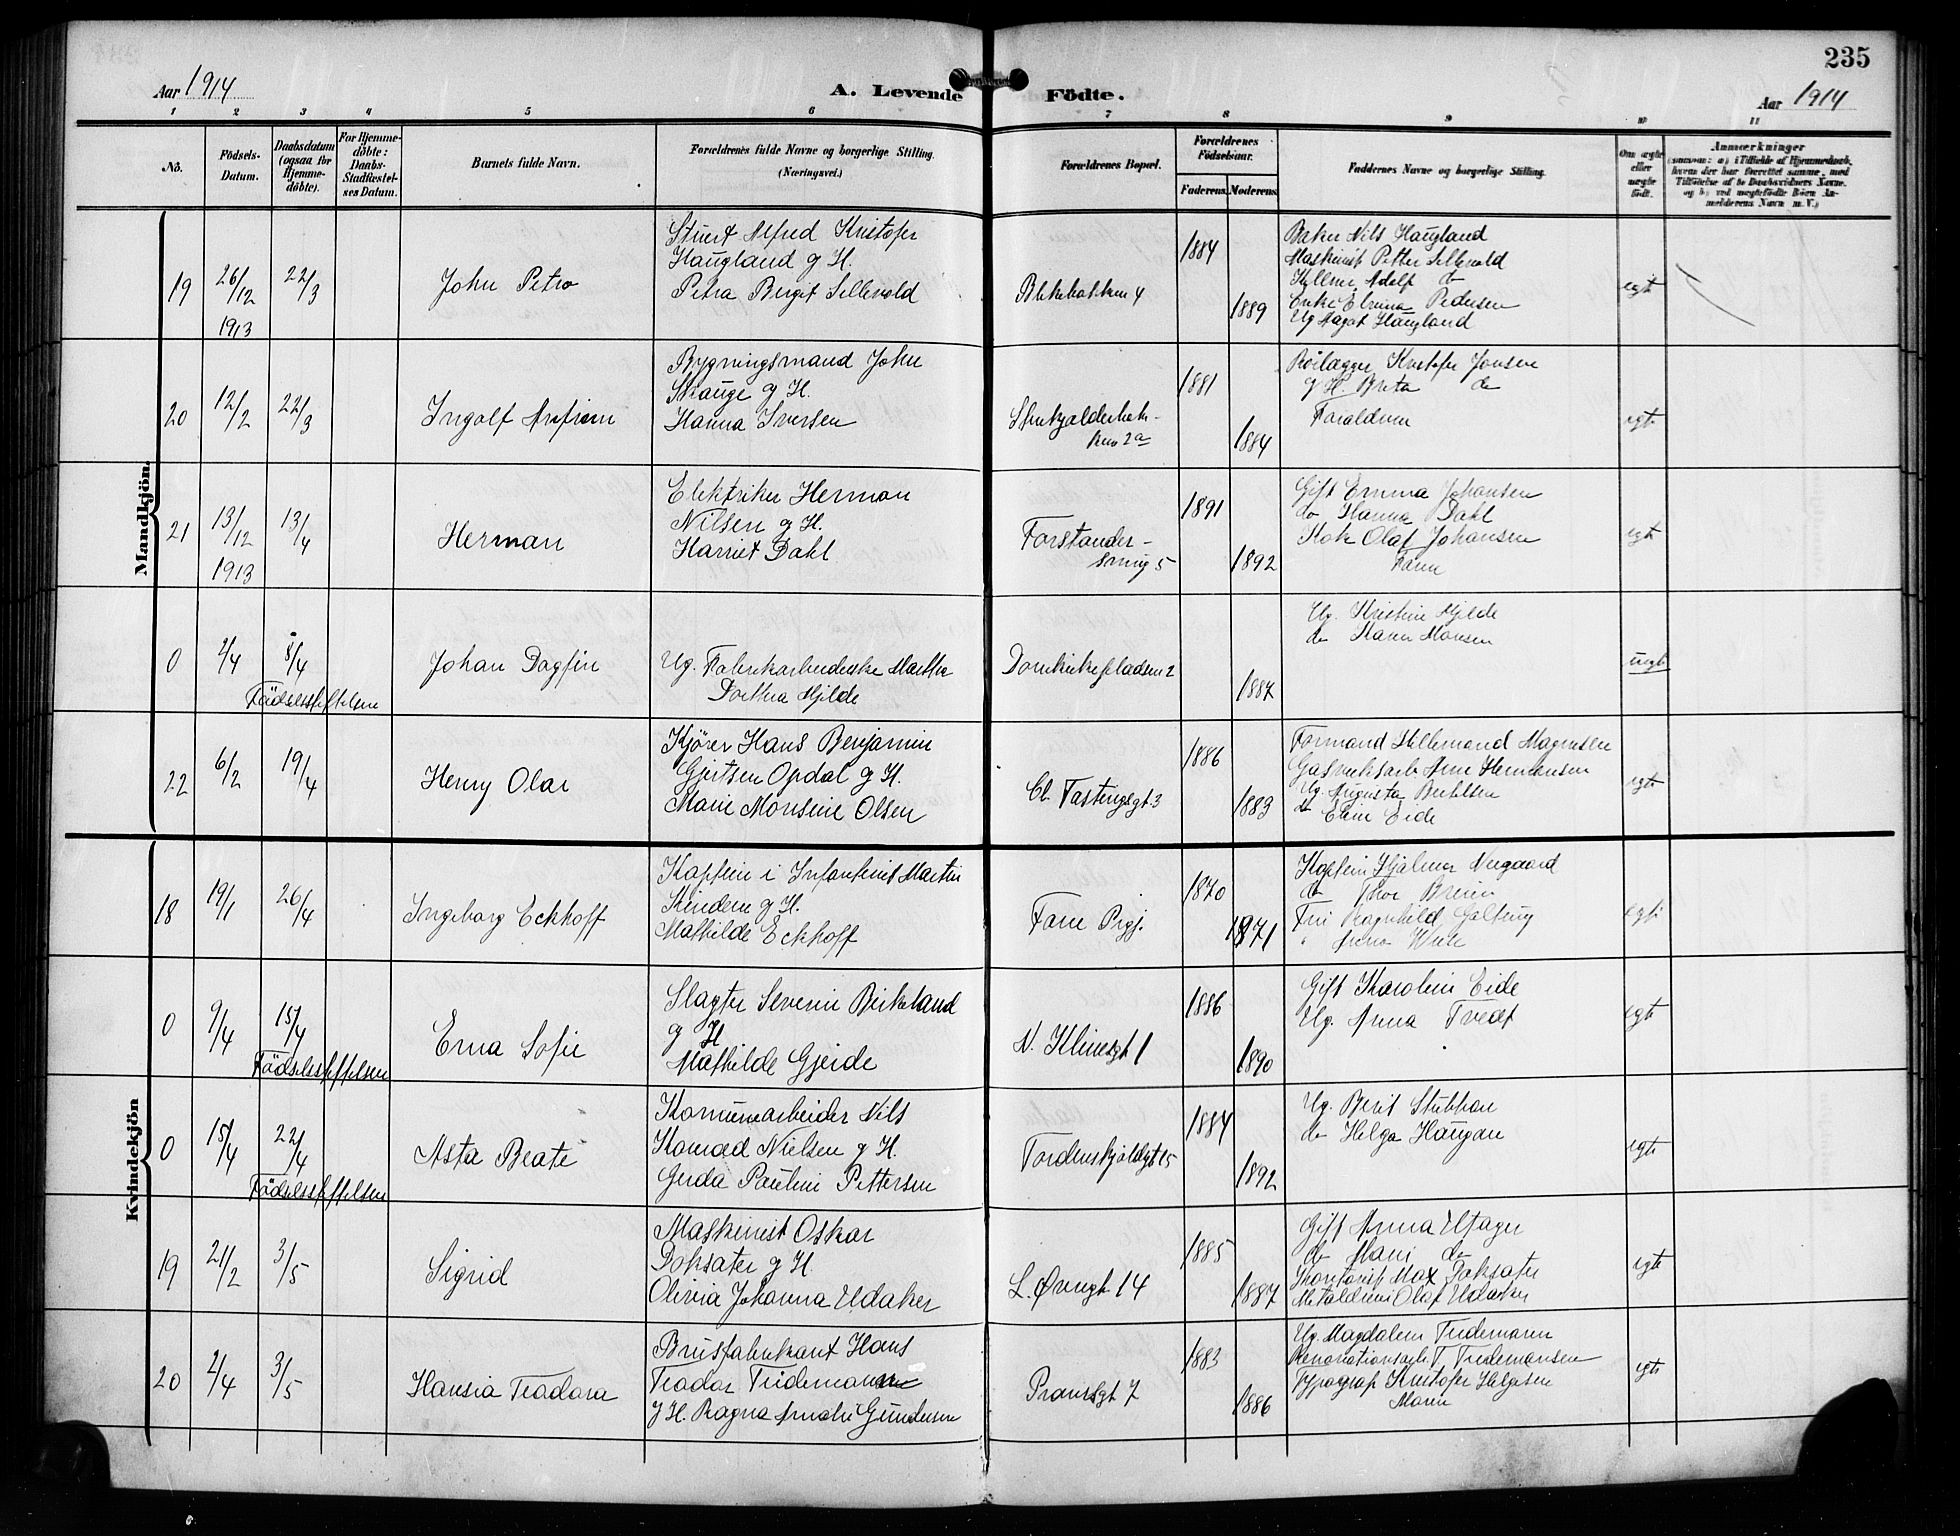 235
Aar 1914
A. Levende Födte.
Aar 1914
1 2 3 4 5 6 7 8 9 10 11
No.
Födsels-Datum.
Daabsdatum (ogsaa for Hjemme-döbte).
For Hjemme-döbte: Daabs-Stadfæstel-ses Datum.
Barnets fulde Navn.
Forældrenes fulde Navne og borgerlige Stilling.
(Næringsvei.)
Forældrenes Bopæl.
Forældrenes Födselsaar.
Faderens. Moderens.
Faddernes Navne og borgerlige Stilling.
Om ægte eller uægte födt.
Anmærkninger
Mandkjön.
19
26/12 1913
22/3
John Petro
Stuert Alfred Kristofer
Haugland g H.
Petra Bergit Sellevold
Blekebakken 4
1884
1889
Baker Nils Haugland
Maskinist Petter Sellevold
Kellner Adolf do
Enke Elvina Pedersen
Ug Aagot Haugland
egte
20
12/2
22/3
Ingolf
Bygningsmand John
Strauge g H.
Hanna Iversen
Stenkjelderbak-
ken 2a
1881
1884
Rörlægger Kristofer Jonsen
g H. Berta do
Forældrene
egte
21
13/12 1913
13/4
Herman
Elektriker Herman
Nilsen g H.
Harriet Dahl
Forstander-
smug 5
1891
1892
Gift Emma Johansen
do Hanna Dahl
Kok Olaf Johansen
Faren
egte
0
2/4
8/4
Födselsstiftelsen
Johan Dagfin
Ug. Fabrikarbeiderske Martha
Dorthea Hjelde
Domkirkepladsen 2
1887
Ug. Kristine Hjelde
do Karen Monsen
uegte
22
6/2
19/4
Henry Olai
Kjörer Hans Benjamin
Gjertsen Opdal g H.
Marie Monsine Olsen
Cl. Fastingsgt. 3
1886
1883
Formand Hillemand Magnusen
Gasverksarb Arne Hermansen
Ug. Augusta Bertelsen
do Eline Eide
egte
Kvindekjön
18
19/1
26/4
Ingeborg Eckhoff
Kaptein i Infanteriet Martin
Kindem g H.
Mathilde Eckhoff
Fane Prgj.
1870
1871
Kaptein Hjalmar Neegaard
do Thor
Fru Ragnhild Galtung
" Anna
egte
0
9/4
15/4
Födselsstiftelsen
Erna Sofie
Slagter Severin Birkeland
g H
Mathilde Gjerde
N. Klinesgt 1
1886
1890
Gift Karoline Eide
Ug. Anna Tvedt
egte
0
15/4
22/4
Födselsstiftelsen
Asta Beate
Komunearbeider Nils
Konrad Nielsen g H.
Gerda Pauline Pettersen
Tordenskjoldgt 15
1884
1892
Ug. Berit Stubhan
do Helga Haugan
egte
19
21/2
3/5
Sigrid
Maskinist Oskar
Toksæter g H.
Olivia Johanna Udaker
L. Øvregt 14
1885
1887
Gift Anna Utager
do Marie do
Kontorist Max Toksæter
Olaf Udaker
egte
20
2/4
3/5
Hansia Teodora
Brusfabrikant Hans
Teodor Tidemann
g H. Ragna Amalie Gundersen
Pramsgt 7
1883
1886
Ug. Magdalene Tidemann
Renovationsarb. T. Tidemansen
Typograf Kristofer Helgesen
Moren
egte